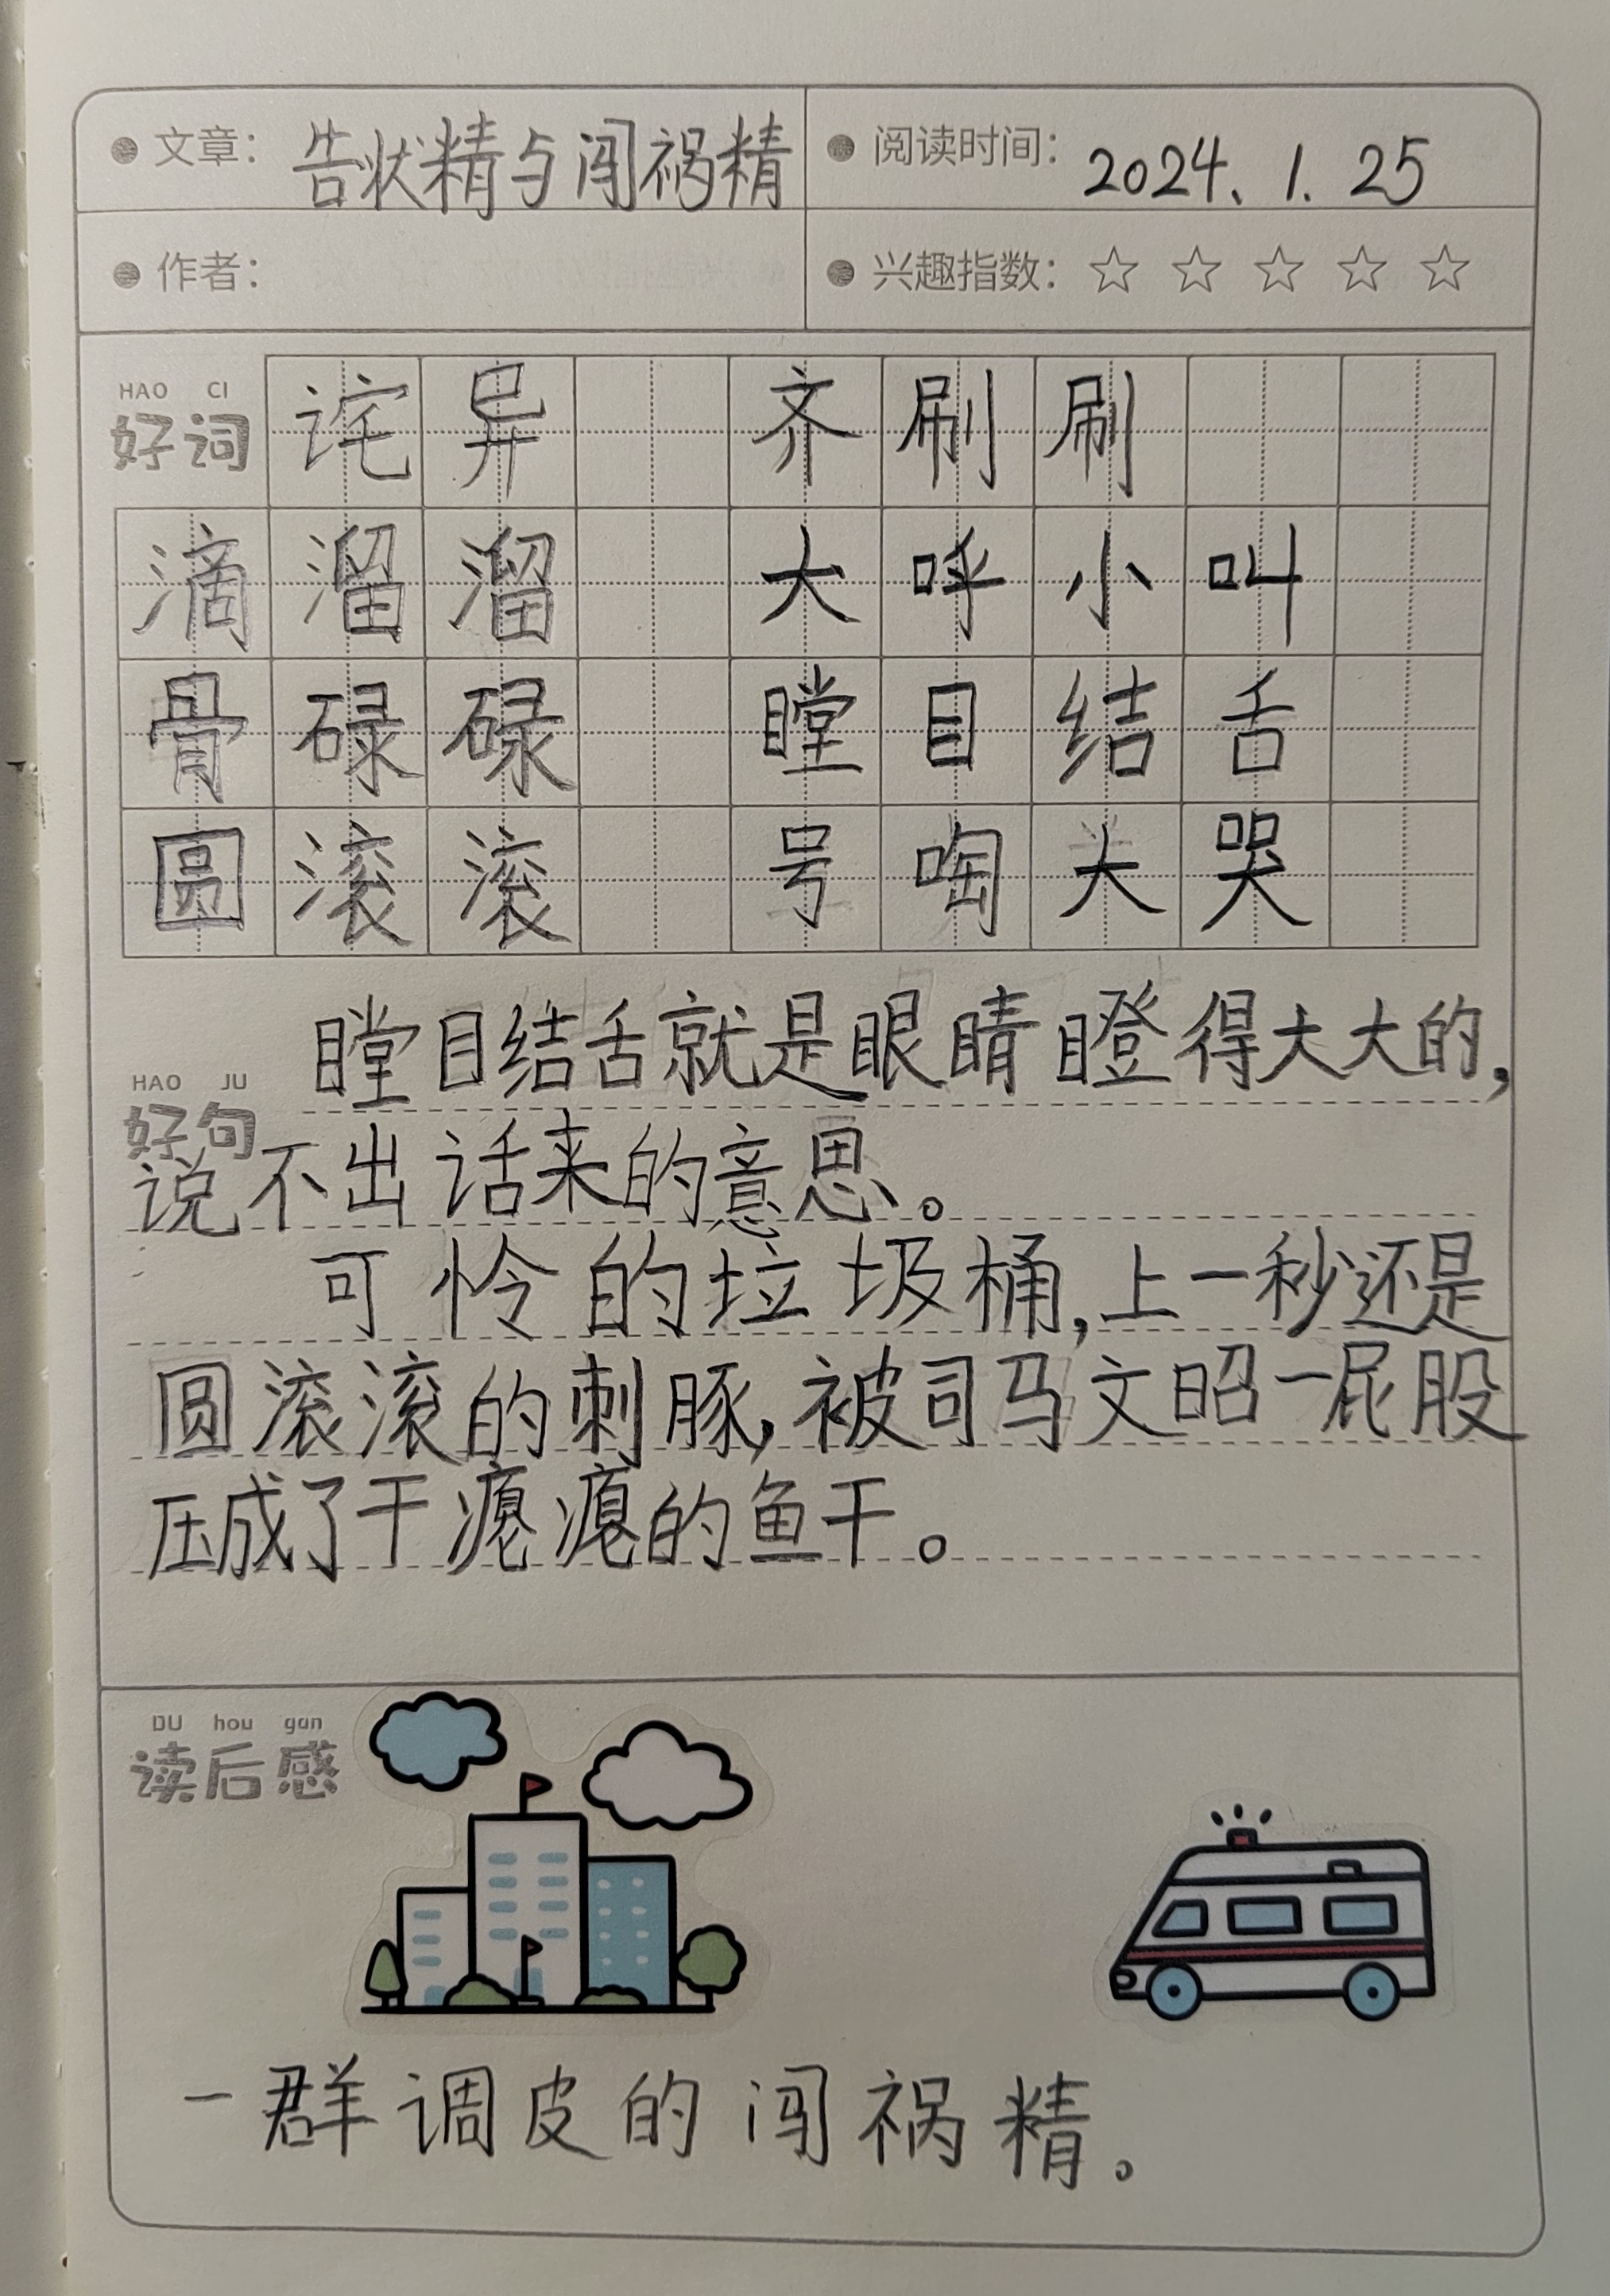 文章： 告状精与闯祸精 阅读时间： 2024.1.25
作者： 兴趣指数： ☆ ☆ ☆ ☆ ☆
HAO CI
好词 诧异 齐刷刷
滴溜溜 大呼小叫
骨碌碌 瞠目结舌
圆滚滚 号啕大哭
瞠目结舌就是眼睛瞪得大大的，
HAO JU
好句
说不出话来的意思。
可怜的垃圾桶，上一秒还是
圆滚滚的刺豚，被司马文昭一屁股
压成了干瘪瘪的鱼干。
DU hou gan
读后感
一群调皮的闯祸精。